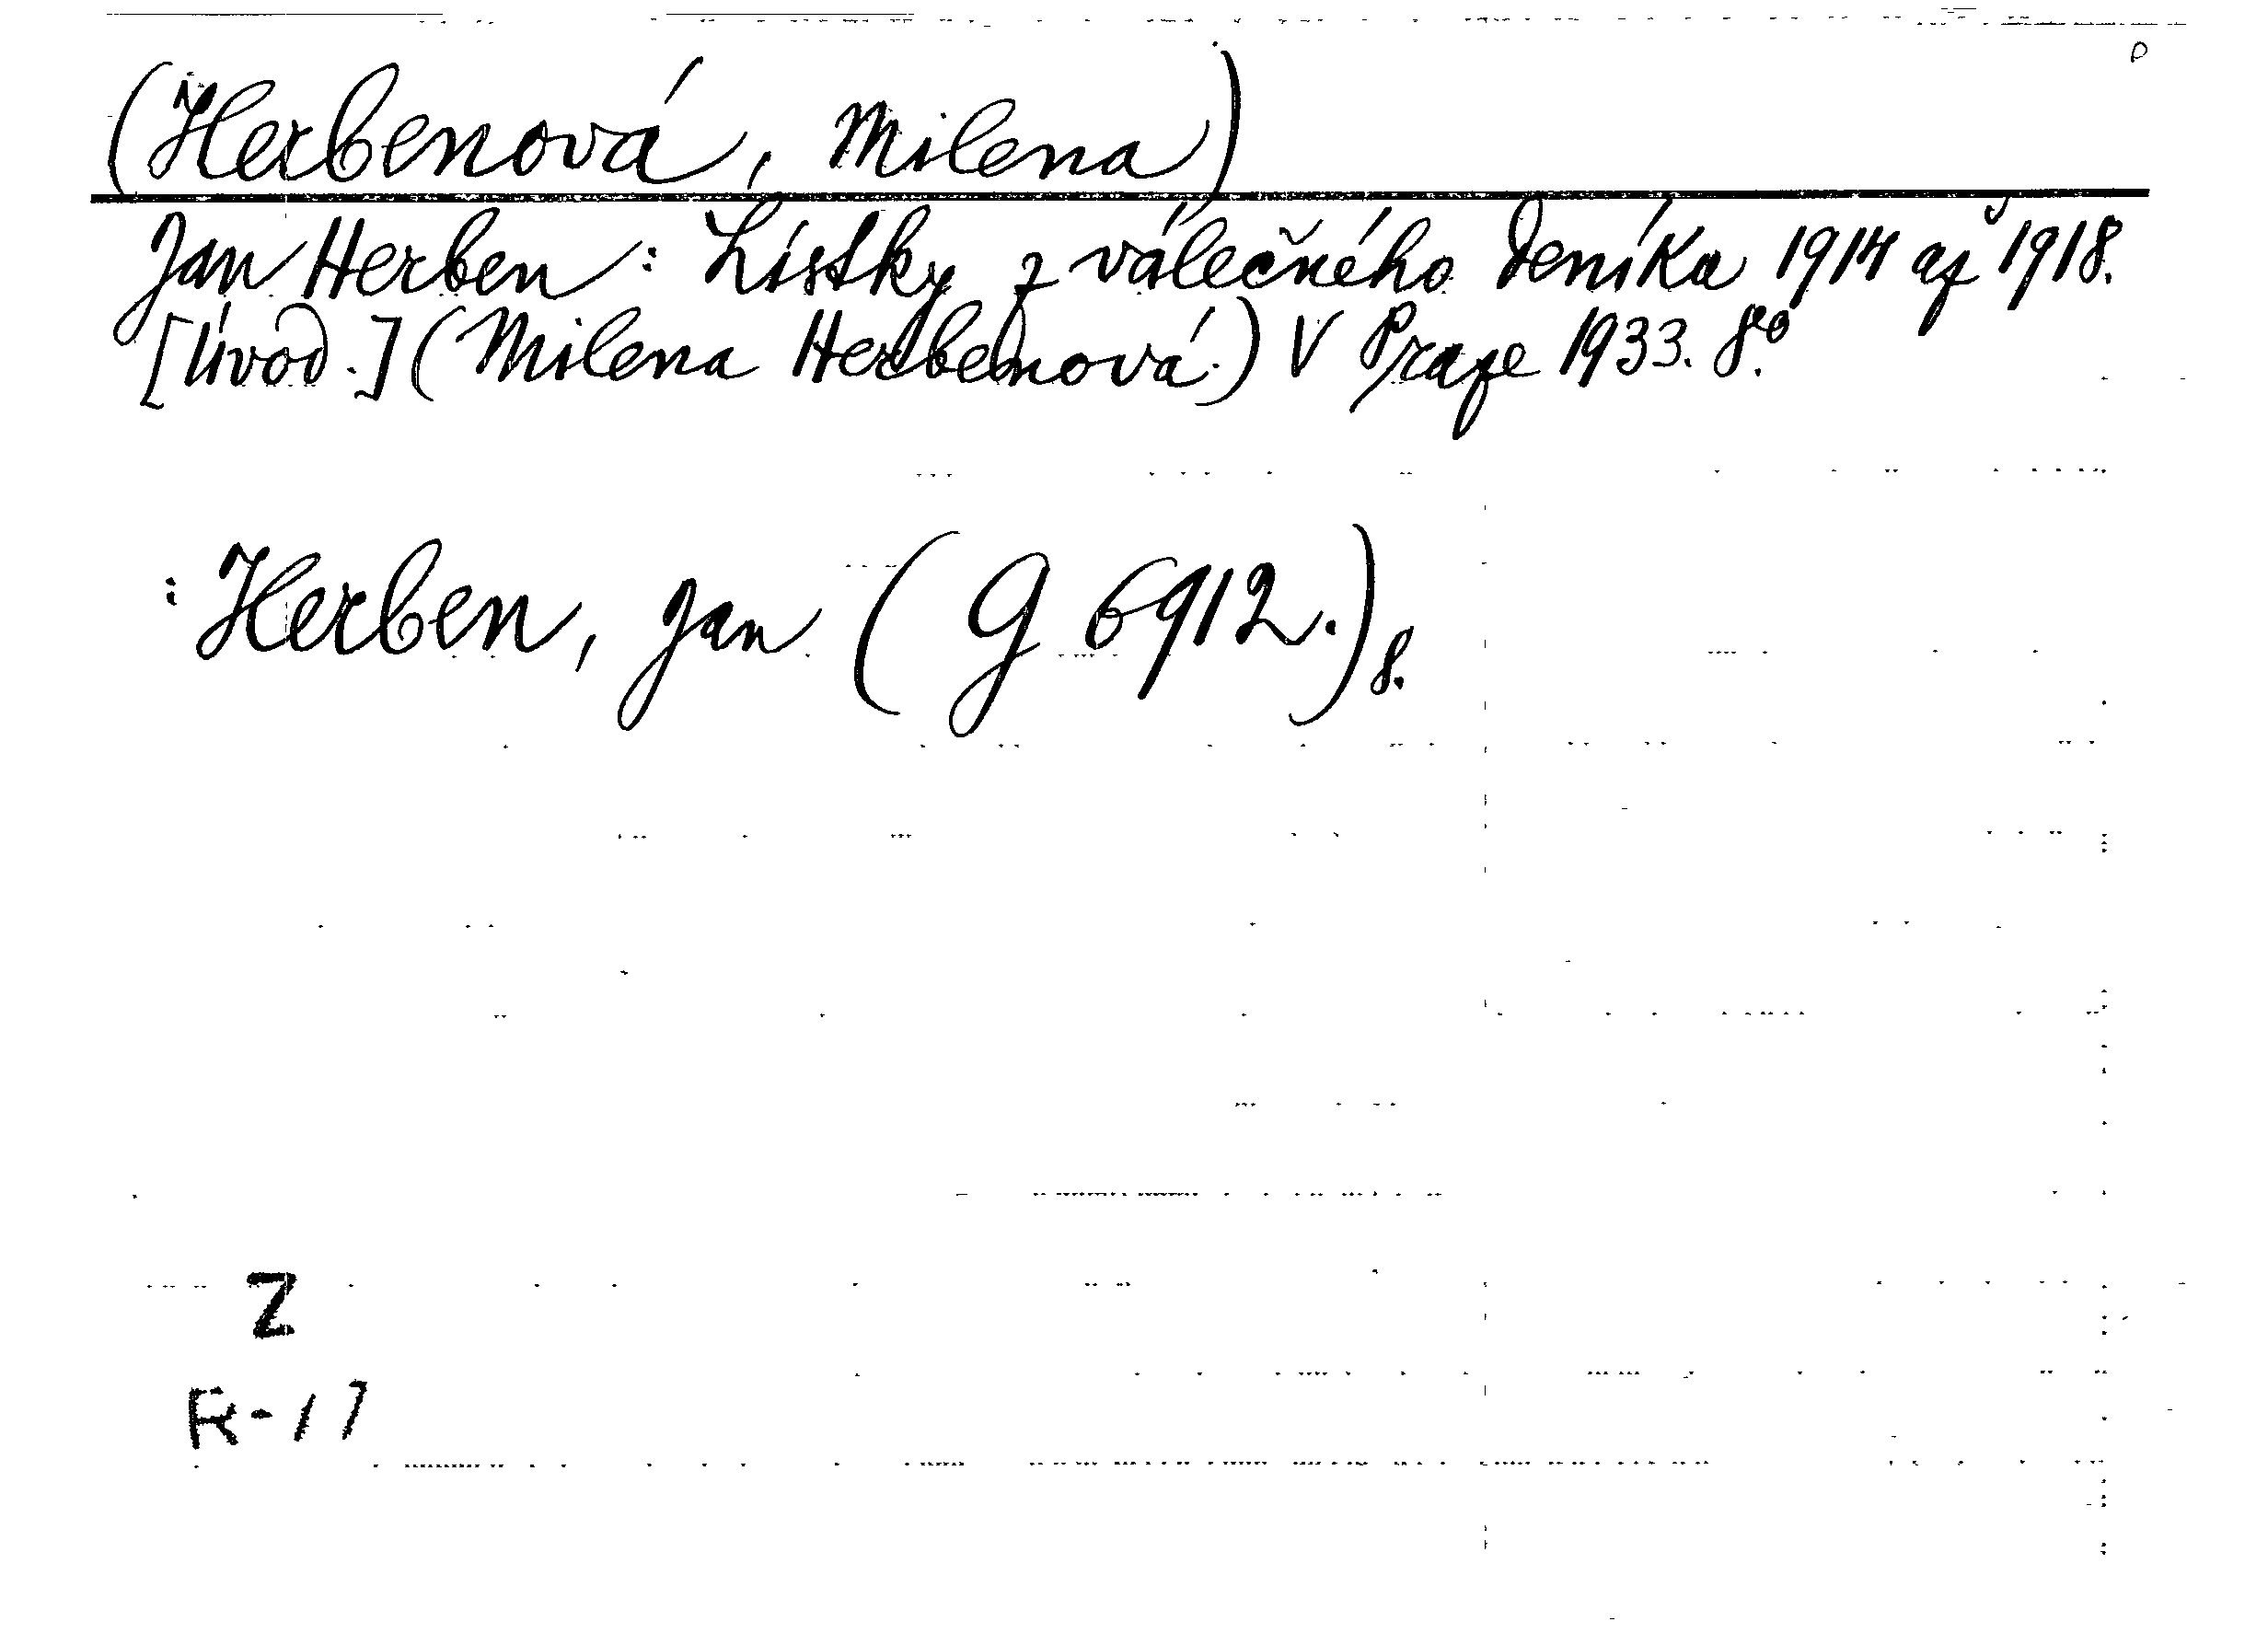 (Herbenová, Milena)
Jan Herben: Lístky z válečného deníka 1914 až 1918.
[Úvod.] (Milena Herbenová.) V Praze 1933. 8º.
: Herben, Jan (G 6912.) 8.
Z
R-17